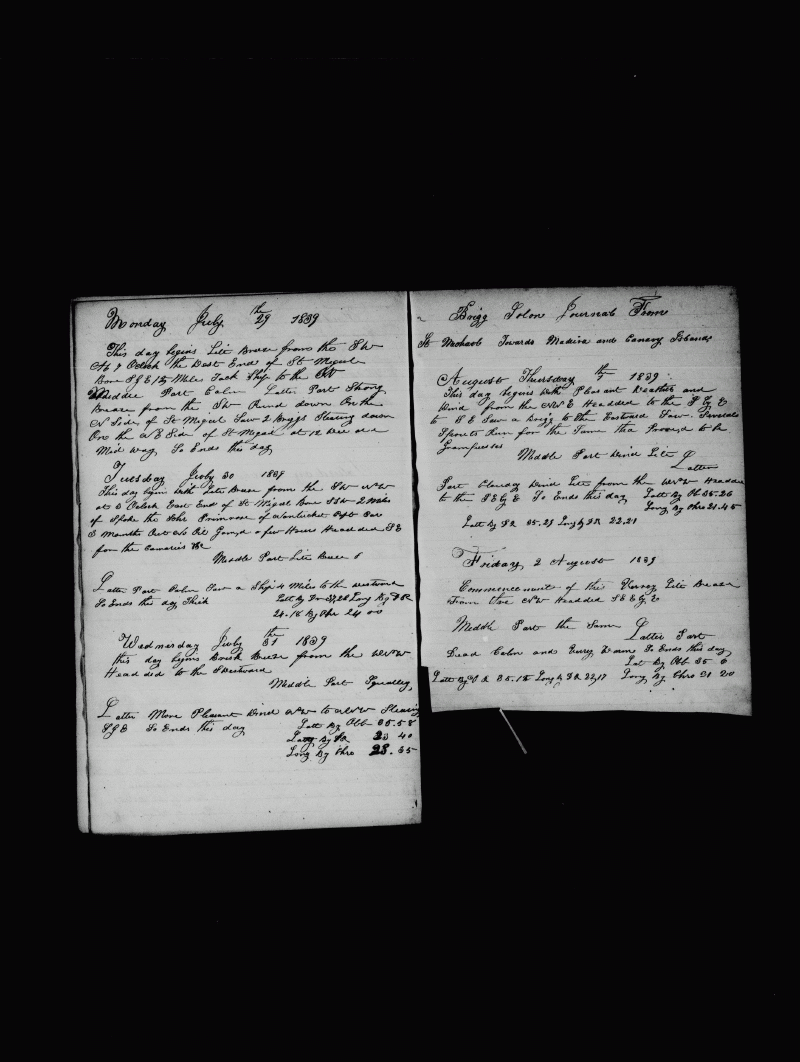 Monday July 29th 1839
This day begins Lite Breeze from the SW
At 7 Oclock the West End of St Miguel
Bore S&E 15 Miles Tack Ship to the W
Middle Part Calm Latter Part Strong
Breeze from the SW Rund down On the
N Side of St Miguel Saw 2 Briggs Stearing down
On the N E Side of St Miguel at 12
Mid way So Ends this day
Tuesday July 30 1839
This day begins with Lite Breeze from the SW WNW
at 5 Oclock East End of St Miguel Bore SSW 2 Miles
of Spoke the Schr Primrose of Nantucket Capt
8 Months Out No Oil Gamd a few Hours Headded SE
for the Canaries &c
Middle Part Lite Breeze
Latter Part Calm Saw a Ship 4 Miles to the westward
So Ends this day Thick Latt By Long By D R
24-18 By Chr 24 00
Wednesday July 31th 1839
this day begins Brisk Breeze from the WNW
Headded to the Swestward
Middle Part Squalley
Latter More Pleasant Wind NW to WNW Stearing
S&E So Ends this day Latt By Obb 35-58
Long By DR 23 40
Long By Chro 23-35
Brigg Solon Journal From
St Michaels Towards Madiria and Canary Islands
August Thursday 1th 1839
This day begins with Pleasant Weather and
Wind from the NNE Headded to the S E
to S E Saw a Brigg to the Eastward Saw Sevearl
Spouts Run for the Same tha Proved to be
Grampusses
Middle Part Wind Lite
Latter
Part Cloudy Wind Lite from the WNW Headded
to the SE&E So Ends this day Latt By Ob 35-26
Long By Chro 21-45
Latt By DR 35-29 Long by DR 22,21
Friday 2 August 1839
Commencement of this Verrey Lite Breeze
From the NW Headded SE&E
Middle Part the Same
Latter Part
Dead Calm and Verry Warm So Ends this day
Lat By Obb 35-6
Latt By D R 35-18 Long by D R 22,17 Long By Chro 21 20